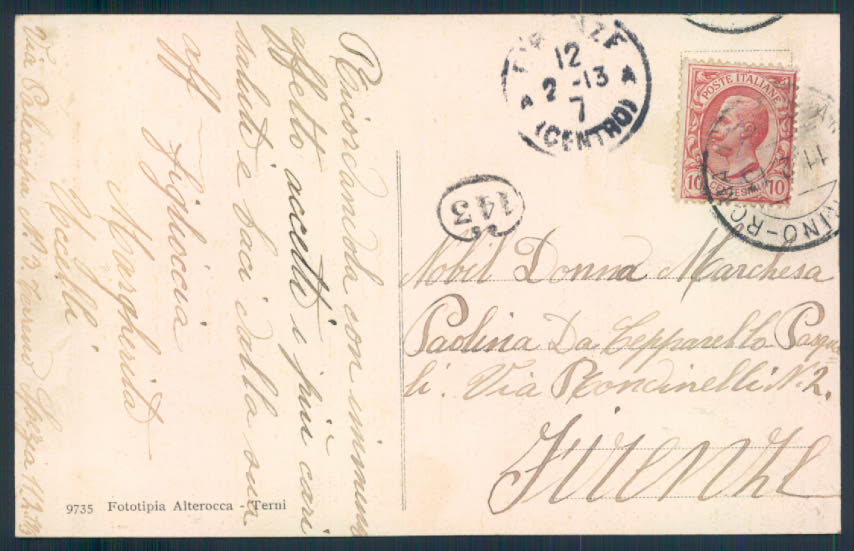 Ricordandola con immenso
affetto accetti i più cari
saluti e baci dalla sua
aff figlioccia
Margherita
Via Paleocapa N. 3. Terreno Spezia 11.2.13
9735 Fototipia Alterocca - Terni
FIRENZE
12
2 -13
7
(CENTRO)
143
POSTE ITALIANE
10 CENTESIMI 10
TORINO-ROMA
11
Nobil Donna Marchesa
Paolina Da Cepparello Pasqua
li. Via Rondinelli N. 2.
Firenze